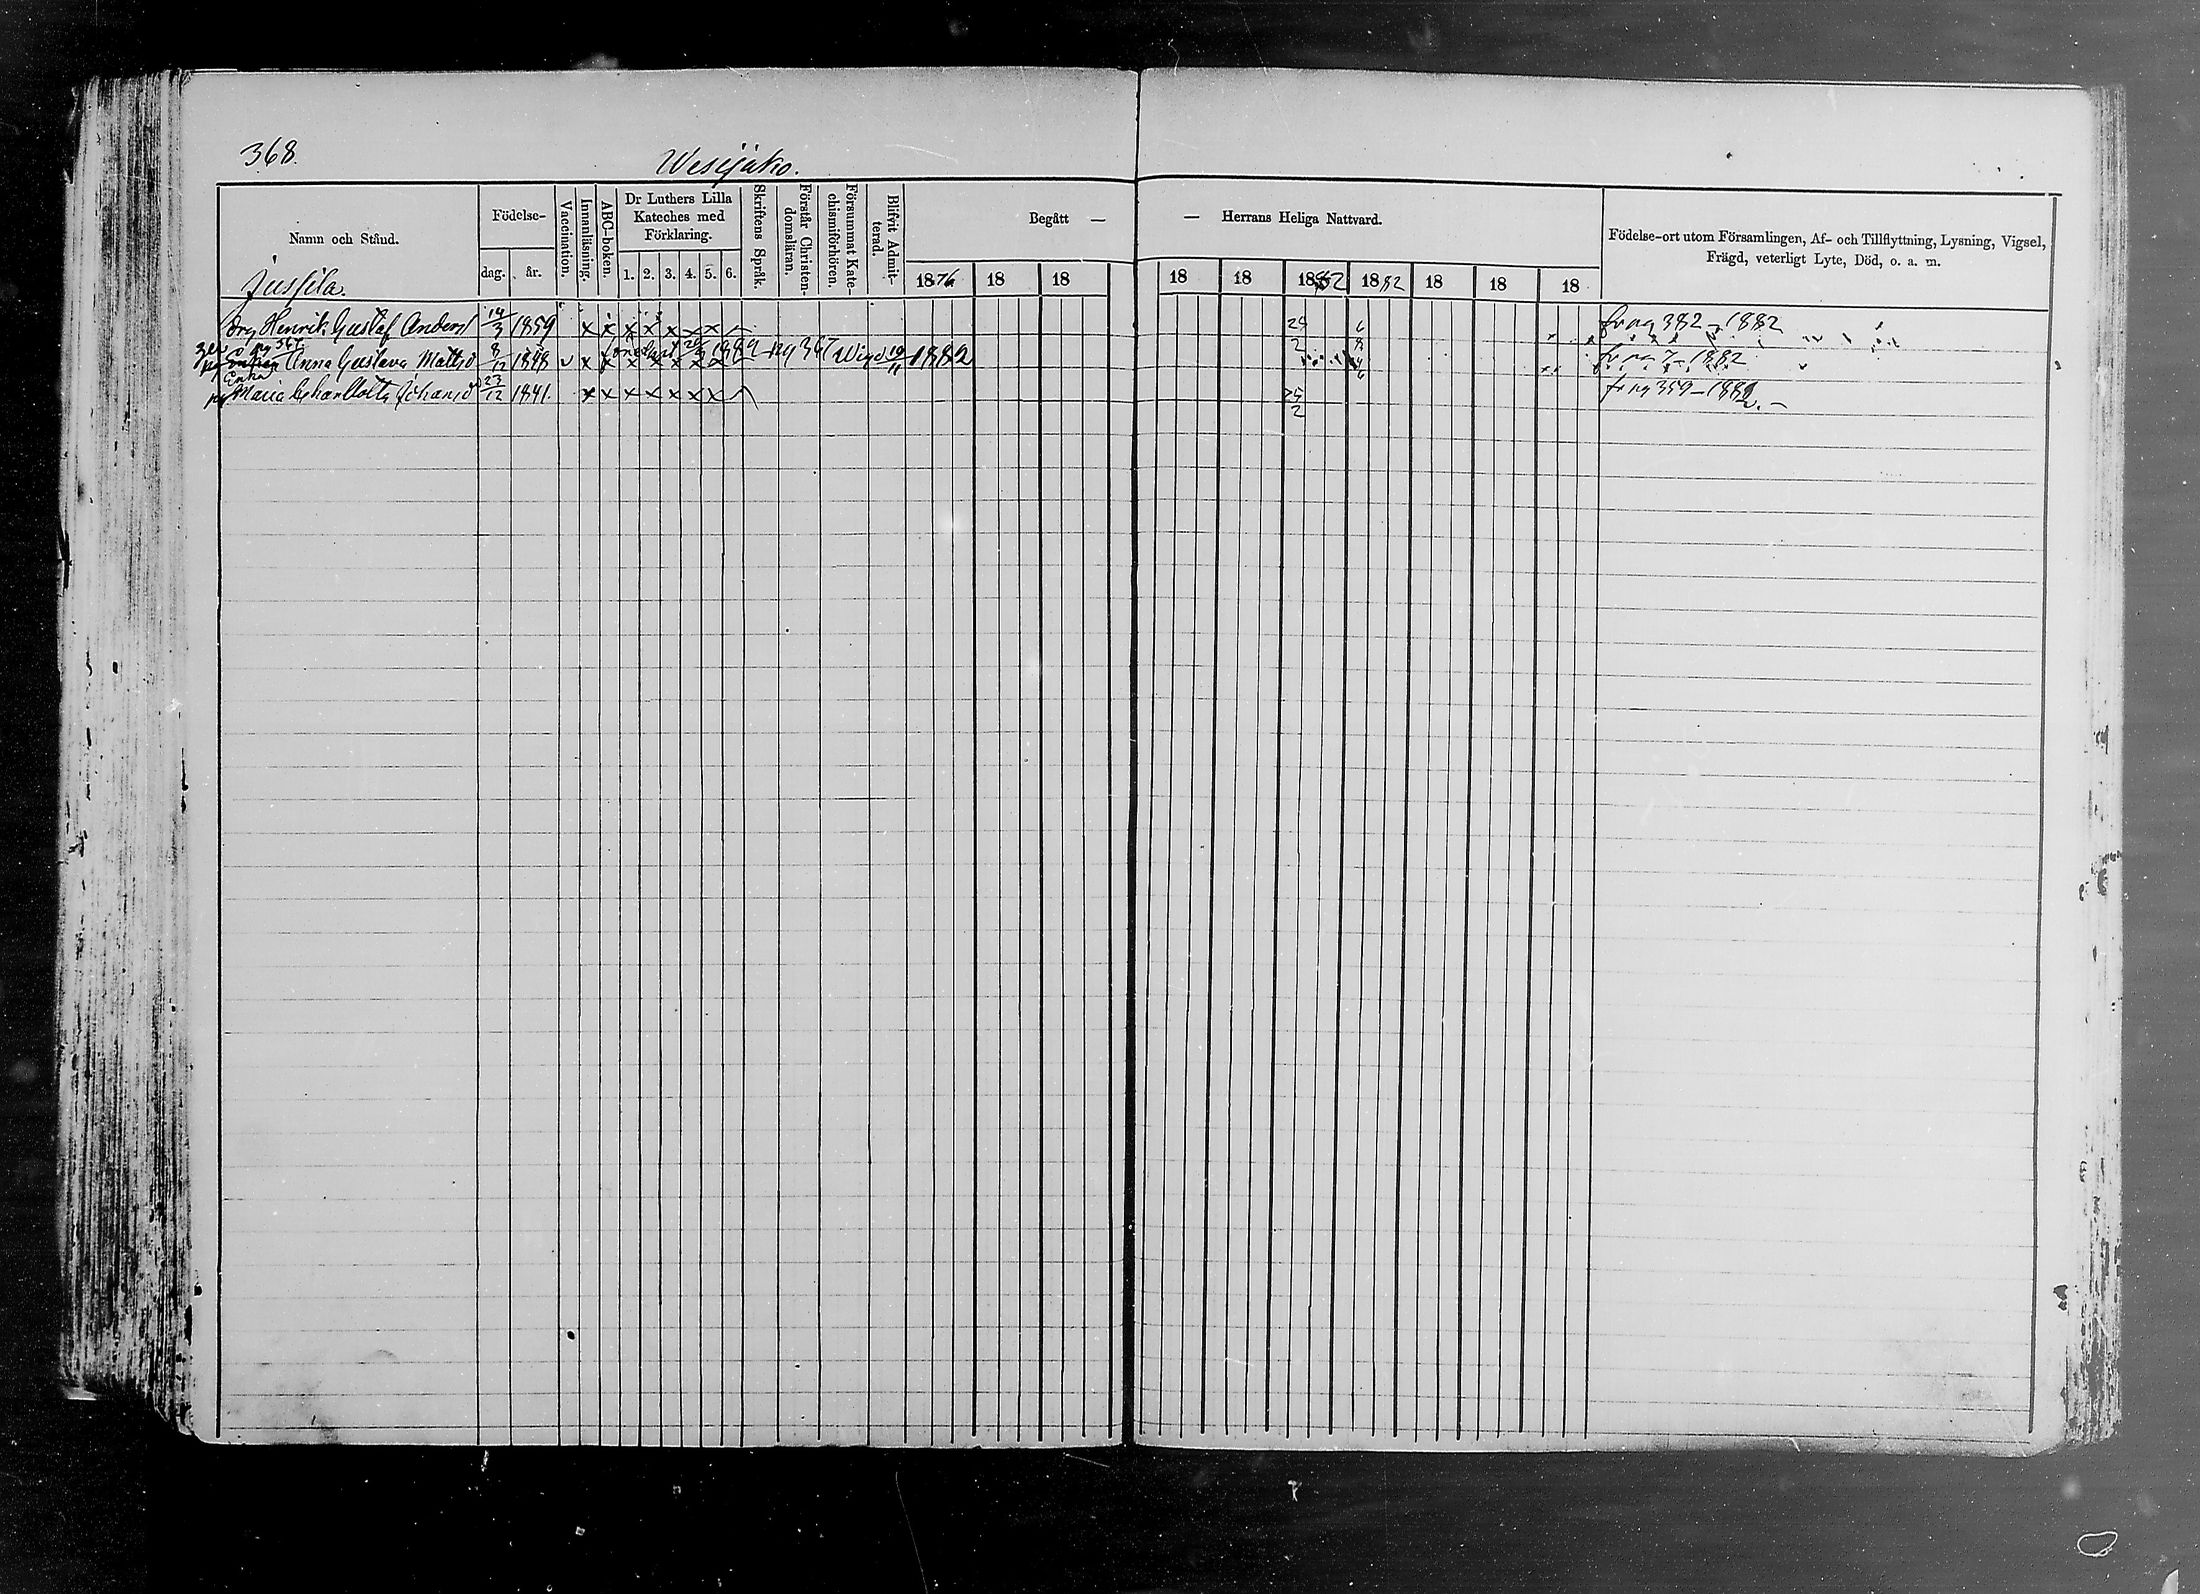 368.
Wesijako.
Namn och Stånd.
Födelse-
dag. år.
Vaccination.
Innanläsning.
ABC-boken.
Dr Luthers Lilla
Kateches med
Förklaring.
1. 2. 3. 4. 5. 6.
Skriftens Språk.
Förstår Christen-
domsläran.
Försummat Kate-
chismiförhören.
Blifvit Admit-
terad.
Begått —
— Herrans Heliga Nattvard.
1876 18 18
18 18 1882 1882 18 18 18
Födelse-ort utom Församlingen, Af- och Tillflyttning, Lysning, Vigsel,
Frägd, veterligt Lyte, Död, o. a. m.
Jussila.
Drg Henrik Gustaf Anders 14/3 1859 x x x x x x x 24/2 6/8 fr pg 382 - 1882
pg 367 20/9 1882 pg 367 Wigd 10/11 1882
Anna Gustava Matsd 8/12 1848 v x x x x x x x fr pg 7 - 1882
Enka
Maria Charlotta Johansd 23/12 1841. x x x x x x x 24/2 fr pg 359 - 1882. -